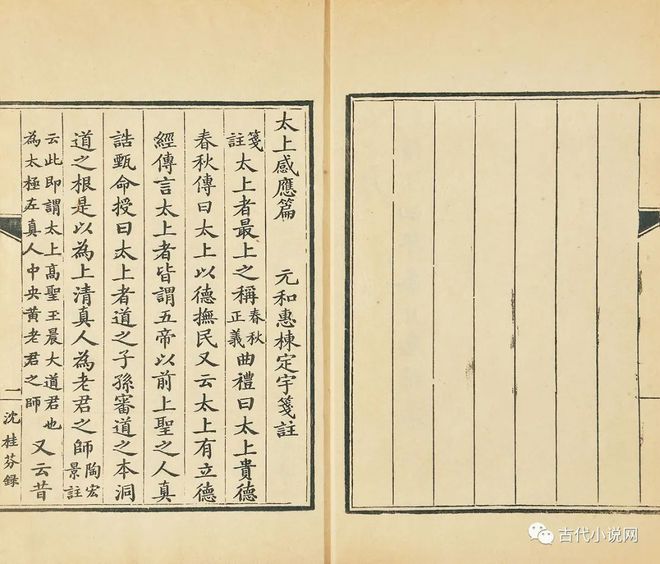 太上感應篇　元和惠棟定宇箋註
箋註太上者最上之稱春秋正義曲禮曰太上貴德
春秋傳曰太上以德撫民又云太上有立德
經傳言太上者皆謂五帝以前上聖之人真
誥甄命授曰太上者道之子孫審道之本洞
道之根是以為上清真人為老君之師陶宏景註
云此即謂太上高聖玉晨大道君也
為太極左真人中央黃老君之師　又云昔
一　沈桂芬錄
古代小说网